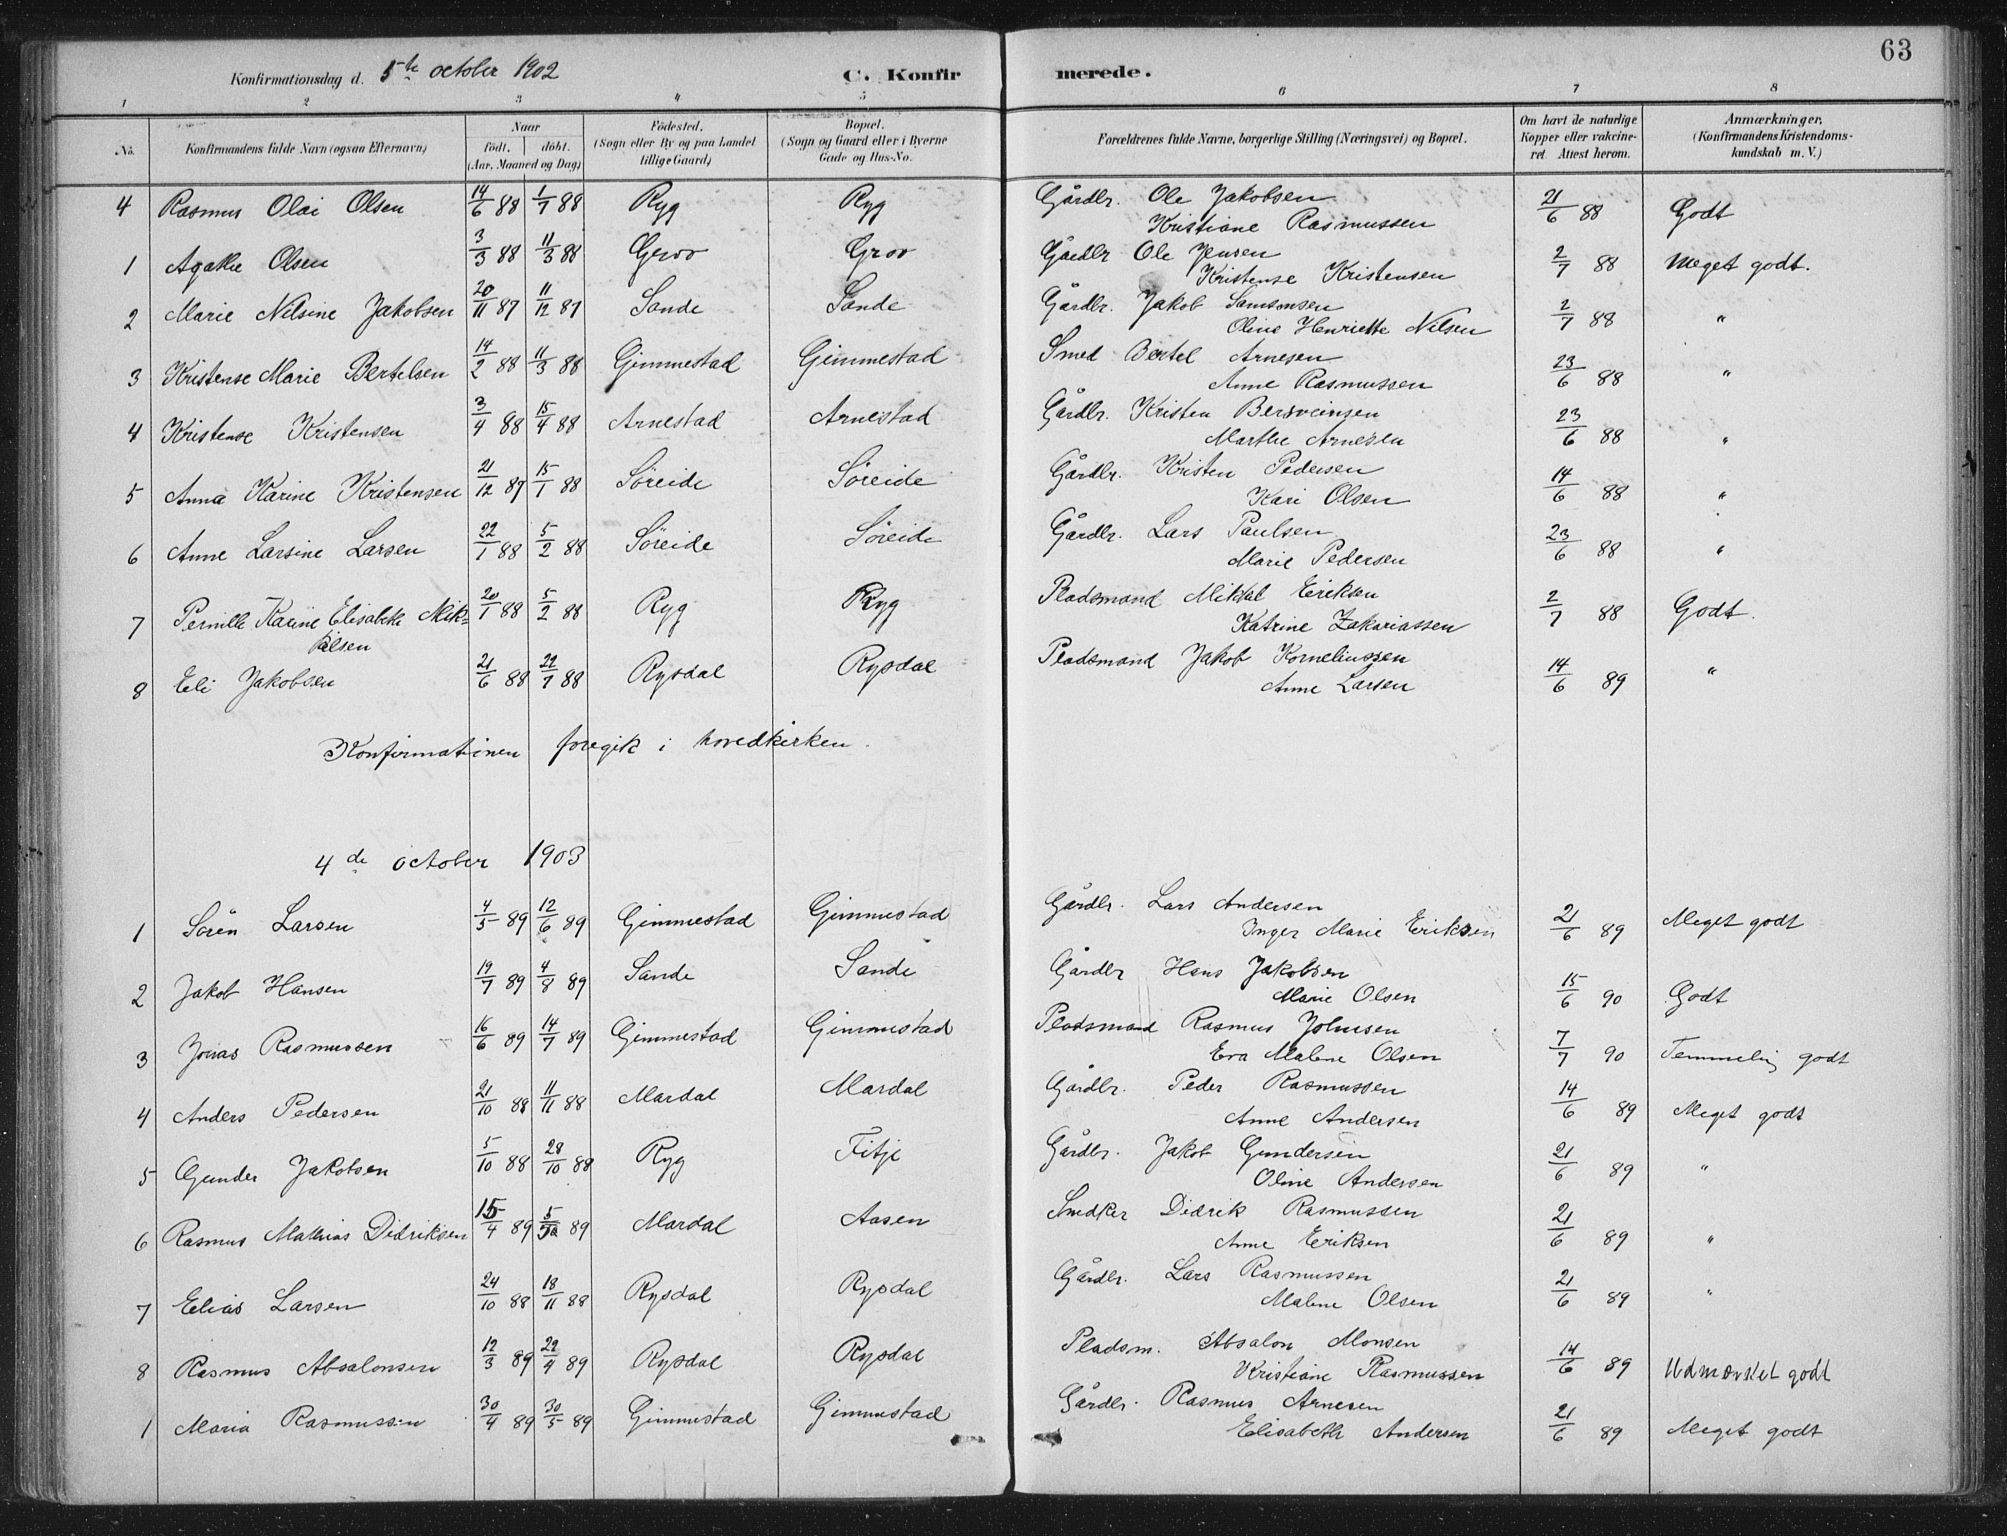 63
Konfirmationsdag d. 5te october 1902 C. Konfirmerede.
1 2 3 4 5 6 7 8
No. Konfirmandens fulde Navn (ogsaa Efternavn) Naar født. døbt. (Aar, Maaned og Dag) Fødested. (Sogn eller By og paa Landet tillige Gaard) Bopæl. (Sogn og Gaard eller i Byerne Gade og Hus-No. Forældrenes fulde Navne, borgerlige Stilling (Næringsvei) og Bopæl. Om havt de naturlige Kopper eller vakcineret. Attest herom. Anmærkninger. (Konfirmandens Kristendomskundskab m. V.)
4 Rasmus Olai Olsen 14/6 88 1/7 88 Ryg Ryg Gårdbr. Ole Jakobsen 21/6 88 Godt
Kristiane Rasmussen
1 Agathe Olsen 3/3 88 11/3 88 Grov Grov Gårdbr Ole Jensen 2/7 88 Meget godt.
Kristense Kristensen
2 Marie Nilsine Jakobsen 20/11 87 11/12 87 Sande Sande Gårdbr. Jakob Samsonsen 2/7 88 "
Oline Henriette Nilsen
3 Kristense Marie Bertelsen 14/2 88 11/3 88 Gimmestad Gimmestad Smed Bertel Arnesen 23/6 88 "
Anne Rasmussen
4 Kristense Kristensen 3/4 88 15/4 88 Arnestad Arnestad Gårdbr. Kristen Bersveinsen 23/6 88 "
Marthe Arnesen
5 Anna Karine Kristensen 21/12 87 15/1 88 Søreide Søreide Gårdbr. Kristen Pedersen 14/6 88 "
Kari Olsen
6 Anne Larsine Larsen 22/1 88 5/2 88 Søreide Søreide Gårdbr. Lars Paulsen 23/6 88 "
Marie Pedersen
7 Pernille Karine Elisabeth Mik= 20/1 88 5/2 88 Ryg Ryg Pladsmand Mikkel Eriksen 2/7 88 Godt.
kelsen Katrine Zakariassen
8 Eli Jakobsen 21/6 88 22/7 88 Rysdal Rysdal Pladsmand Jakob Korneliussen 14/6 89 "
Anne Larsen
Konfirmationen foregik i hovedkirken.
4de october 1903
1 Sören Larsen 4/5 89 12/6 89 Gimmestad Gimmestad Gårdbr. Lars Andersen 21/6 89 Meget godt
Inger Marie Eriksen
2 Jakob Hansen 19/7 89 4/8 89 Sande Sande Gårdbr Hans Jakobsen 15/6 90 Godt
Marie Olsen
3 Jonas Rasmussen 16/6 89 14/7 89 Gimmestad Gimmestad Pladsmand Rasmus Johnsen 7/7 90 Temmelig godt
Eva Malene Olsen
4 Anders Pedersen 21/10 88 11/11 88 Mardal Mardal Gårdbr. Peder Rasmussen 14/6 89 Meget godt
Anne Andersen
5 Gunder Jakobsen 5/10 88 28/10 88 Ryg Fitje Gårdbr. Jakob Gundersen 21/6 89 "
Oline Andersen
6 Rasmus Mathias Didriksen 15/4 89 89 Mardal Aasen Snedker Didrik Rasmussen 21/6 89 "
Anne Eriksen
7 Elias Larsen 24/10 88 18/11 88 Rysdal Rysdal Gårdbr. Lars Rasmussen 21/6 89 "
Malene Olsen
8 Rasmus Absalonsen 12/3 89 22/4 89 Rysdal Rysdal Pladsm. Absalon Monsen 14/6 89 Udmærket godt
Kristiane Rasmussen
1 Maria Rasmussen 30/4 89 30/5 89 Gimmestad Gimmestad Gårdbr. Rasmus Arnesen 21/6 89 Meget godt
Elisabeth Andersen